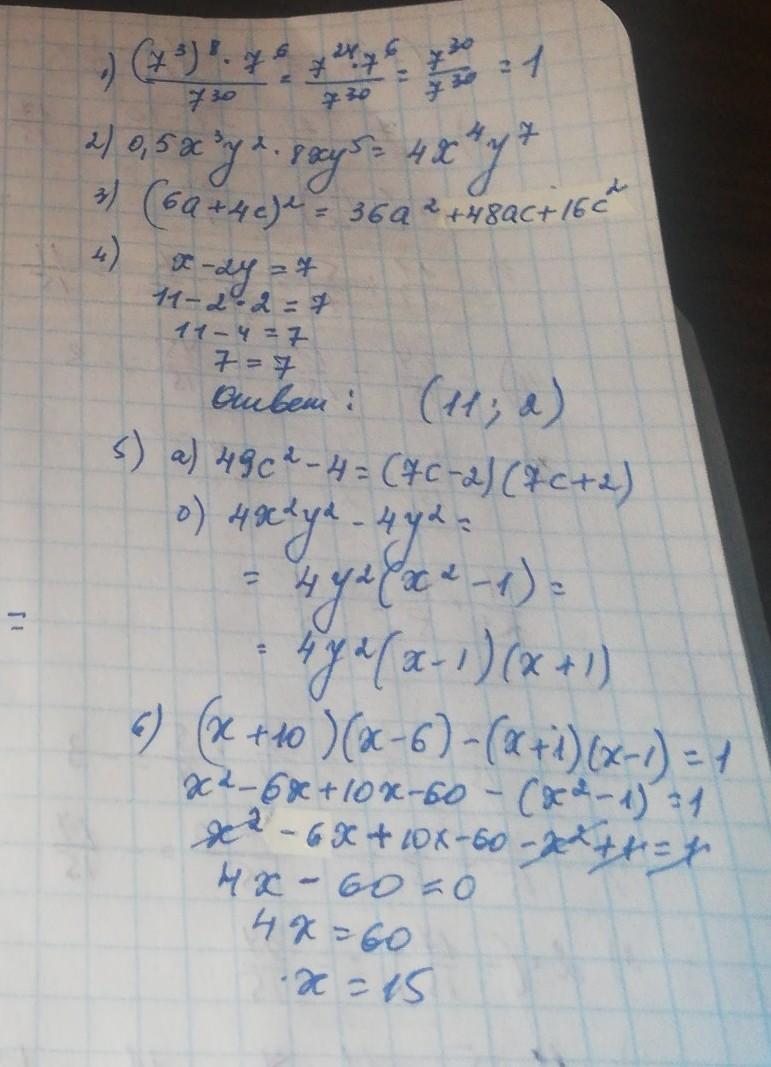 1) (7³)⁸ · 7⁶ / 7³⁰ = 7²⁴ · 7⁶ / 7³⁰ = 7³⁰ / 7³⁰ = 1
2) 0,5x³y² · 8xy⁵ = 4x⁴y⁷
3) (6a+4c)² = 36a² + 48ac + 16c²
4) x - 2y = 7
11 - 2 · 2 = 7
11 - 4 = 7
7 = 7
Ответ: (11; 2)
5) а) 49c² - 4 = (7c-2)(7c+2)
б) 4x²y² - 4y² =
= 4y²(x² - 1) =
=
= 4y²(x-1)(x+1)
6) (x+10)(x-6) - (x+1)(x-1) = 1
x² - 6x + 10x - 60 - (x² - 1) = 1
x² - 6x + 10x - 60 - x² + 1 = 1
4x - 60 = 0
4x = 60
x = 15